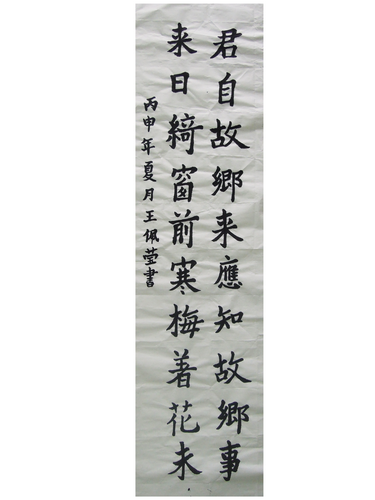 君自故鄉来應知故鄉事
来日綺窗前寒梅着花未
丙申年夏月王佩莹書